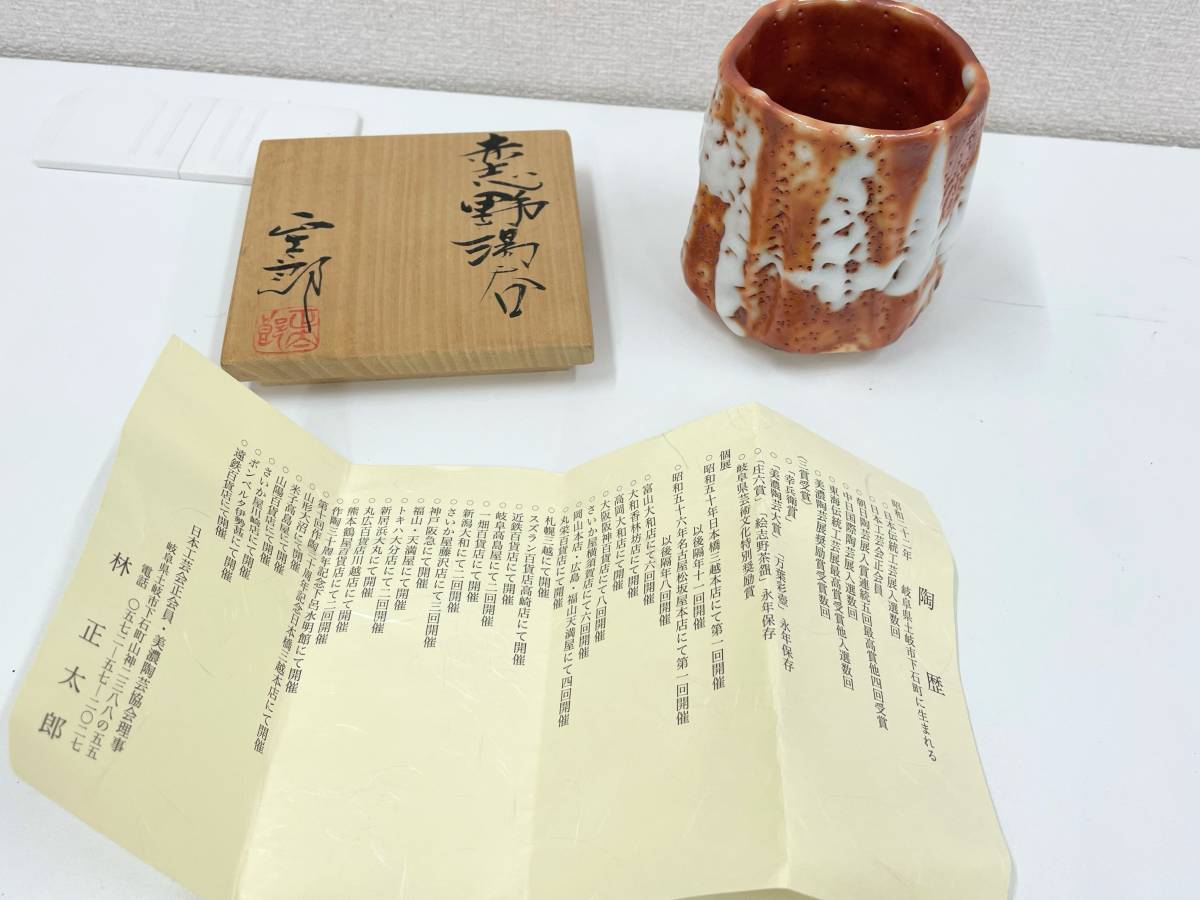 赤志野湯呑
正太郎
陶歴
昭和二十二年 岐阜県土岐市下石町に生まれる
○日本伝統工芸展入選数回
○日本工芸会正会員
○朝日陶芸展入賞連続五回最高賞他四回受賞
○中日国際陶芸展入選数回
○東海伝統工芸展最高賞受賞他入選数回
○美濃陶芸展奨励賞受賞数回
(三賞受賞)
○「幸兵衛賞」「万葉彩壺」永年保存
○「美濃陶芸大賞」
○「庄六賞」「絵志野茶盌」永年保存
○岐阜県芸術文化特別奨励賞
個展
○昭和五十年日本橋三越本店にて第一回開催
以後隔年十一回開催
○昭和五十六年名古屋松坂屋本店にて第一回開催
以後隔年八回開催
○富山大和店にて六回開催
○高岡大和店にて開催
○大和香林坊店にて開催
○大阪阪神百貨店にて八回開催
○さいか屋横須賀店にて六回開催
○岡山本店・広島・福山天満屋にて四回開催
○丸栄百貨店にて開催
○札幌三越にて開催
○スズラン百貨店高崎店にて開催
○近鉄百貨店にて開催
○岐阜高島屋にて二回開催
○一畑百貨店にて二回開催
○新潟大和にて二回開催
○さいか屋藤沢店にて三回開催
○神戸阪急にて開催
○福山・天満屋にて開催
○トキハ大分店にて開催
○新居浜大丸にて二回開催
○丸広百貨店川越店にて開催
○熊本鶴屋百貨店にて二回開催
○作陶三十周年記念日本橋三越本店にて開催
○第十回作陶三十周年記念下呂水明館にて開催
○山形大沼にて開催
○米子高島屋にて開催
○山陽百貨店にて開催
○さいか屋川崎店にて開催
○ボンベルタ伊勢甚にて開催
○遠鉄百貨店にて開催
日本工芸会正会員・美濃陶芸協会理事
岐阜県土岐市下石町山神二三八八の五五
電話 〇五七二―五七―二〇二七
林 正太郎